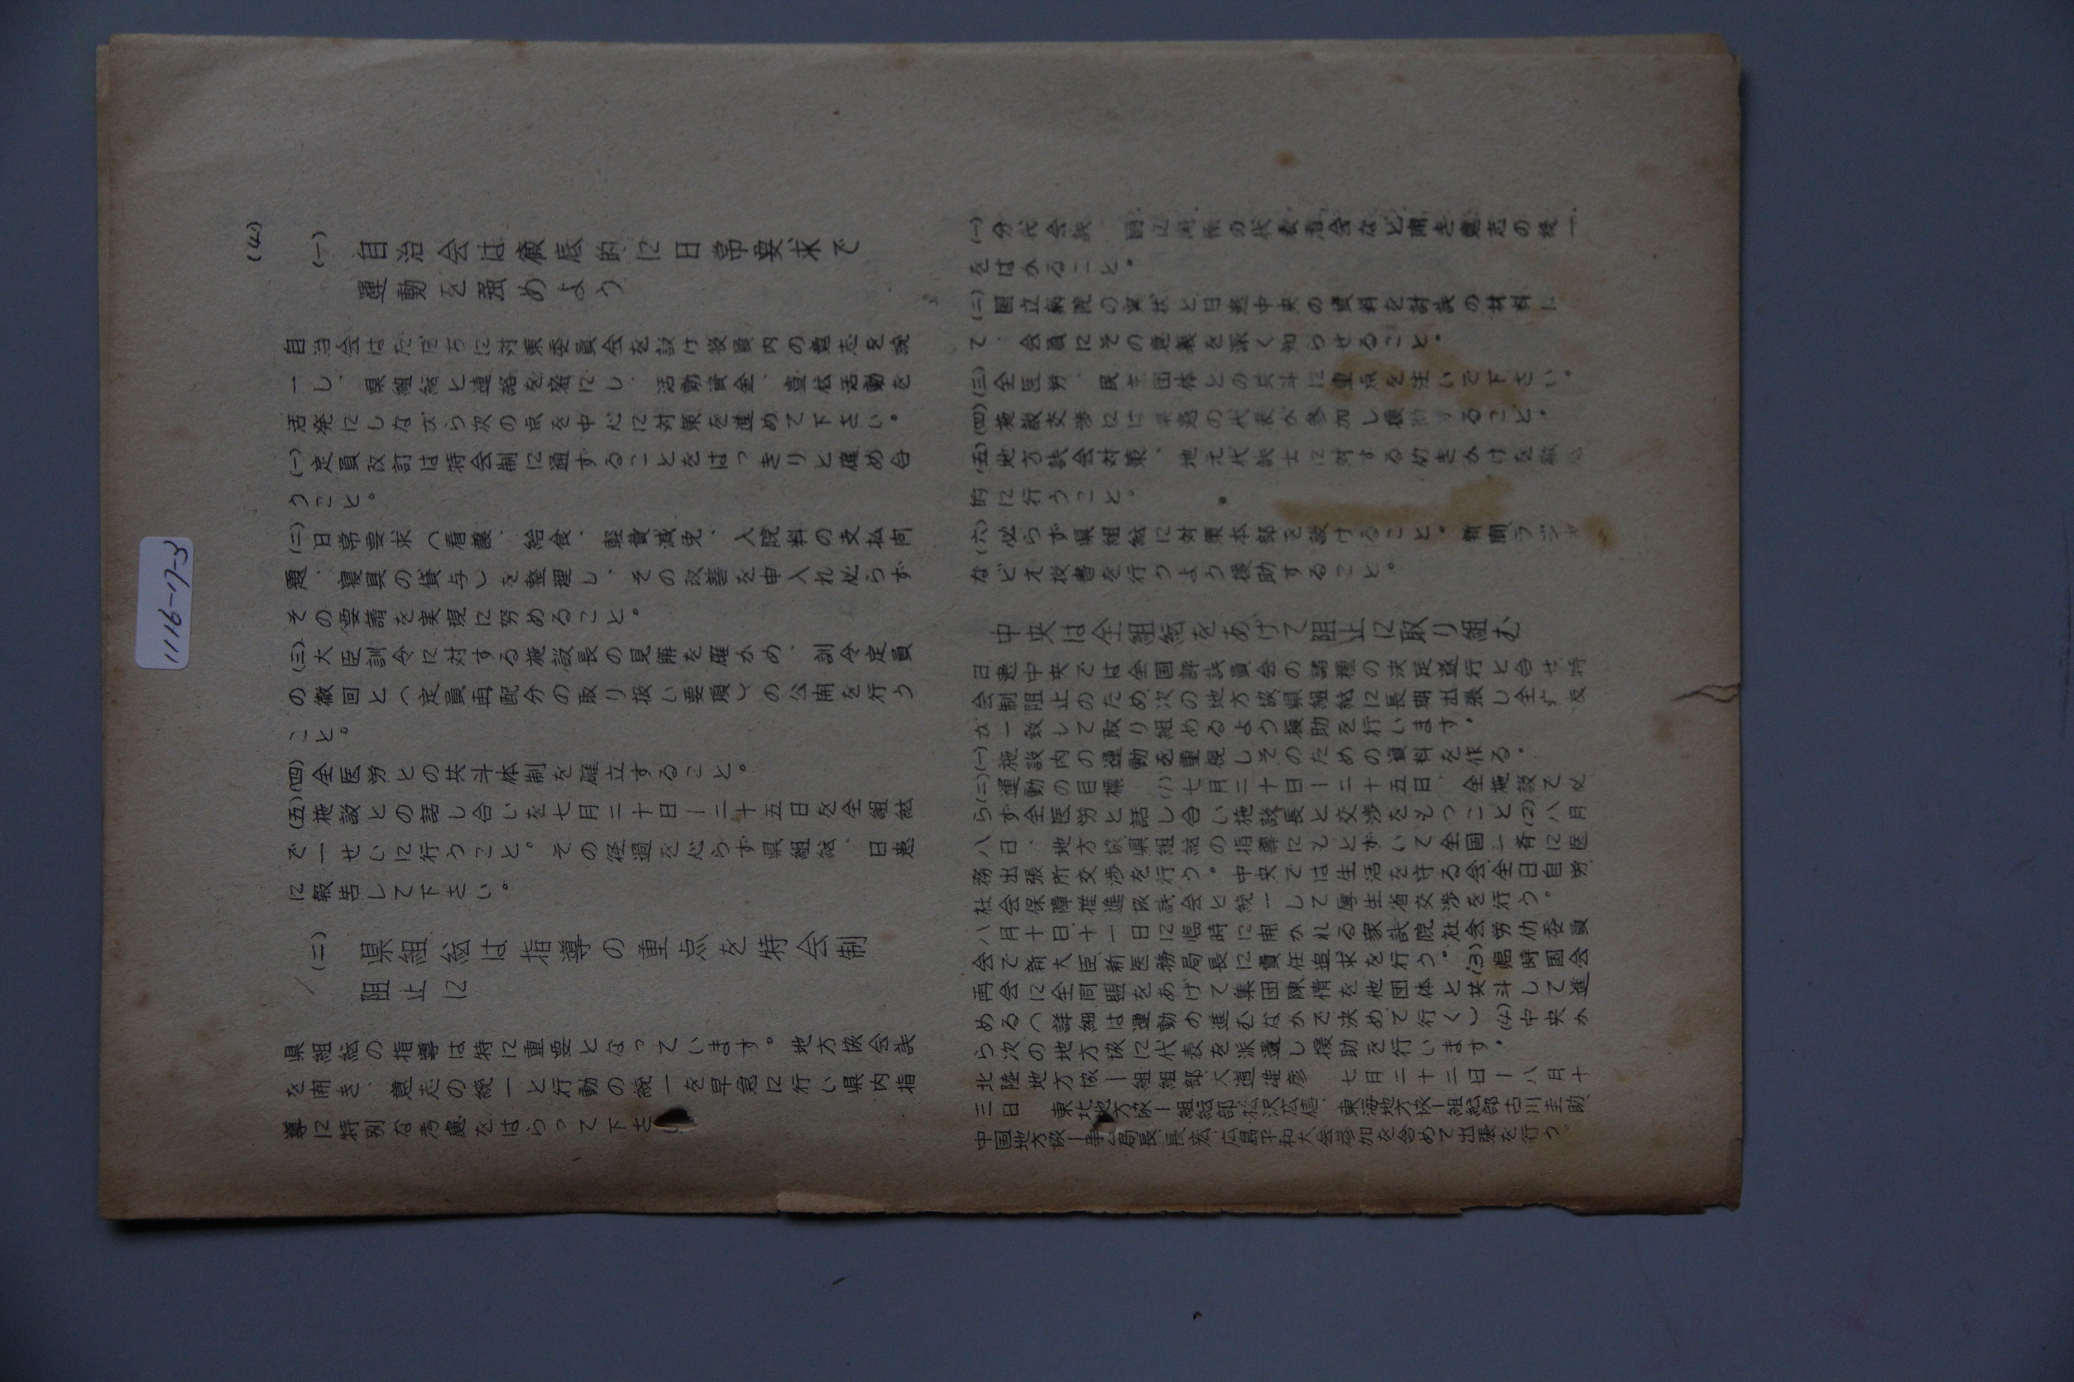 (4)
(一) 自治会は徹底的に日常要求で
運動を強めよう
自治会はただちに対策委員会を設け役員内の意志を統
一し、県組織と連絡を密にし、活動資金、宣伝活動を
活発にしながら次の点を中心に対策を進めて下さい。
(一)定員改訂は特会制に通ずることをはっきりと確め合
うこと。
(二)日常要求(看護、給食、軽費減免、入院料の支払問
題、寝具の貸与)を整理し、その改善を申入れ必らず
その要請を実現に努めること。
(三)大臣訓令に対する施設長の見解を確かめ、訓令定員
の撤回と(定員再配分の取り扱い要項)の公開を行う
こと。
(四)全医労との共斗体制を確立すること。
(五)施設との話し合いを七月二十日ー二十五日を全組織
で一せいに行うこと。その経過を必らず県組織、日患
に報告して下さい。
(二) 県組織は指導の重点を特会制
阻止に
県組織の指導は特に重要となっています。地方協会議
を開き、意志の統一と行動の統一を早急に行い県内指
導に特別な考慮をはらって下さい
(一)分代会議 国立病院の代表者会など開き意志の統一
をはかること。
(二)国立病院の実状と日患中央の資料を討議の材料に
て、会員にその意義を深く知らせること。
(三)全医労、民主団体との共斗に重点を注いで下さい。
(四)施設交渉には県患の代表が参加しすること。
(五)地方議会対策、地元代議士に対する働きかけを
的に行うこと。
(六)必らず県組織に対策本部を設けること。新聞ラジオ
など え投書を行うよう援助すること。
中央は全組織をあげて阻止に取り組む
日患中央では全国評議員会の諸種の決定遂行と合せ特
会制阻止のため次の地方協県組織に長期出張し全支
が一致して取り組めるよう援助を行います。
(一)施設内の運動を重視しそのための資料を作る。
(二)運動の目標 (1)七月二十日ー二十五日、全施設で必
らず全医労と話し合い施設長と交渉をもつこと(2)八月
八日、地方協県組織の指導にもとずいて全国一斉に医
務出張所交渉を行う。中央では生活を守る会全日自労
社会保障推進協議会と統一して厚生省交渉を行う。
八月十日、十一日に臨時に開かれる衆議院社会労仂委員
会で新大臣、新医務局長に責任追求を行う。(3)臨時国会
再会に全同盟をあげて集団陳情を他団体と共斗して進
める(詳細は運動の進むなかで決めて行く)(4)中央か
ら次の地方協に代表を派遣し援助を行います。
北陸地方協ー組織部、大道雄彦 七月二十二日ー八月十
三日 東北地方協ー組織部、松沢広信、東海地方協ー組織部古川圭助、
中国地方協ー事務局長、長宏、広島平和大会参加を含めて出張を行う。
1116-17-3